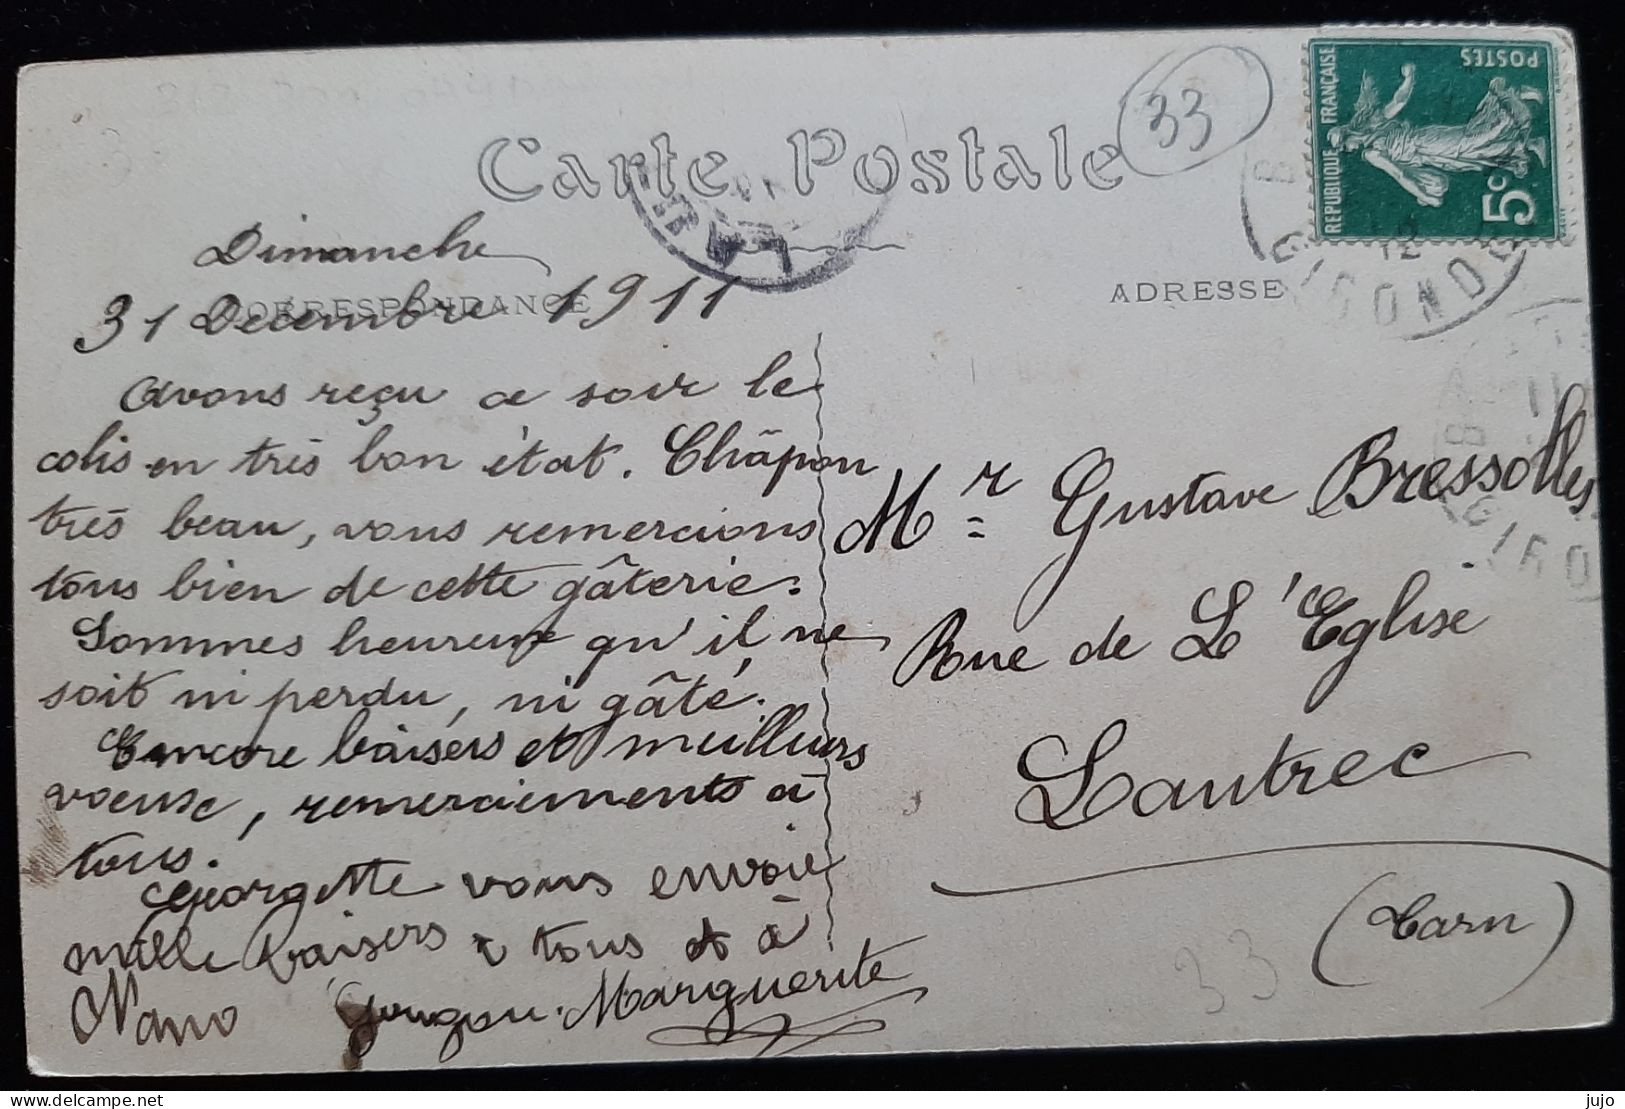 Carte Postale
33
REPUBLIQUE FRANÇAISE
POSTES
5c
Dimanche
CORRESPONDANCE
31 Decembre 1911
ADRESSE
GIRONDE
Avons reçu ce soir le
colis en très bon état. Châpon
très beau, vous remercions
tous bien de cette gâterie.
Sommes heureux qu'il ne
soit ni perdu, ni gâté.
Encore baisers et meilleurs
voeux, remerciements à
tous.
Georgette vous envoie
mille baisers à tous et à
Nano
Marguerite
Mr Gustave Bressolles
Rue de L'Eglise
Lautrec
(Tarn)
33
GIRO
Delcampe.net
jujo